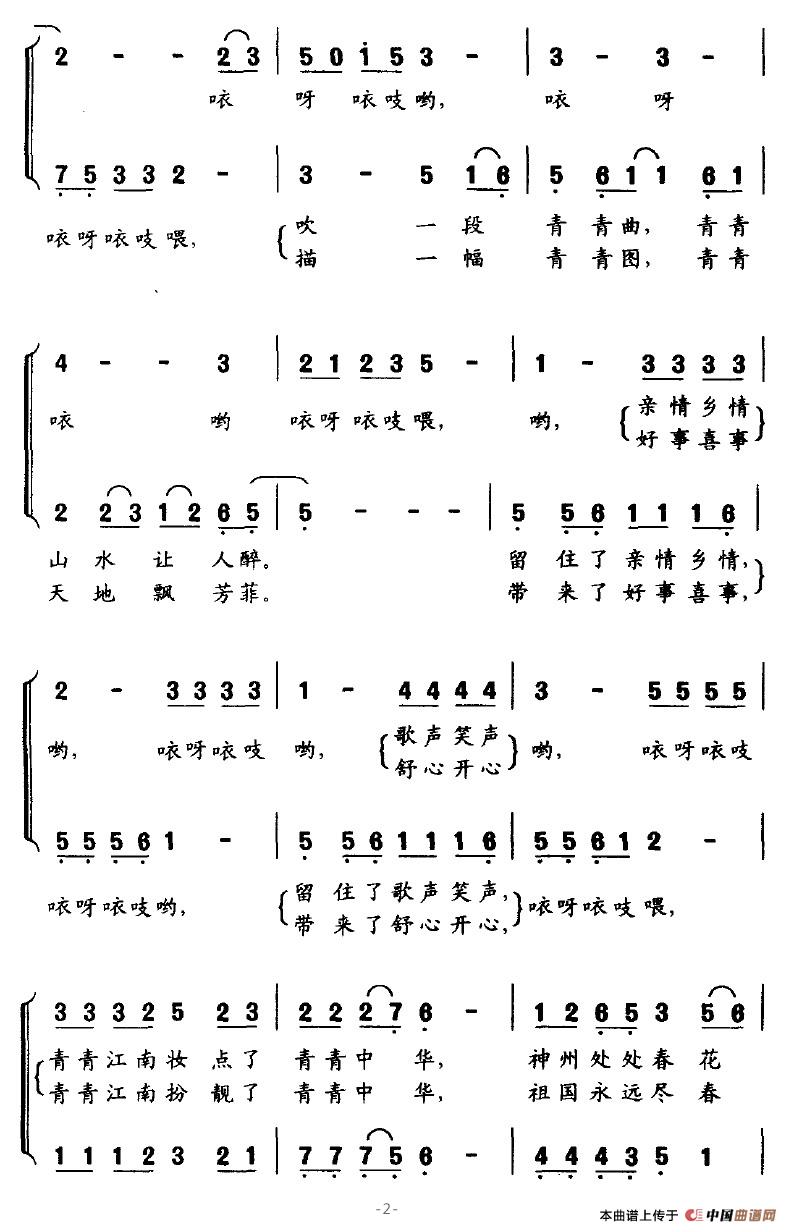 2 - - 2 3 | 5 0 1 5 3 - | 3 - 3 - |
咴 呀 咴吱哟, 咴 呀
7 5 3 3 2 - | 3 - 5 1 6 | 5 6 1 1 6 1 |
咴呀咴吱喂, 吹 一段 青青曲, 青青
描 一幅 青青图, 青青
4 - - 3 | 2 1 2 3 5 - | 1 - 3 3 3 3 |
咴 哟 咴呀咴吱喂, 哟, 亲情乡情
好事喜事
2 2 3 1 2 6 5 | 5 - - - | 5 5 6 1 1 1 6 |
山水让人醉。 留住了亲情乡情,
天地飘芳菲。 带来了好事喜事,
2 - 3 3 3 3 | 1 - 4 4 4 4 | 3 - 5 5 5 5 |
哟, 咴呀咴吱 哟, 歌声笑声 哟, 咴呀咴吱
舒心开心
5 5 5 6 1 - | 5 5 6 1 1 1 6 | 5 5 6 1 2 - |
咴呀咴吱哟, 留住了歌声笑声, 咴呀咴吱喂,
带来了舒心开心,
3 3 3 2 5 2 3 | 2 2 2 7 6 - | 1 2 6 5 3 5 6 |
青青江南妆点了 青青中华, 神州处处春花
青青江南扮靓了 青青中华, 祖国永远尽春
1 1 1 2 3 2 1 | 7 7 7 5 6 - | 4 4 4 3 5 1 |
-2-
本曲谱上传于 中国曲谱网